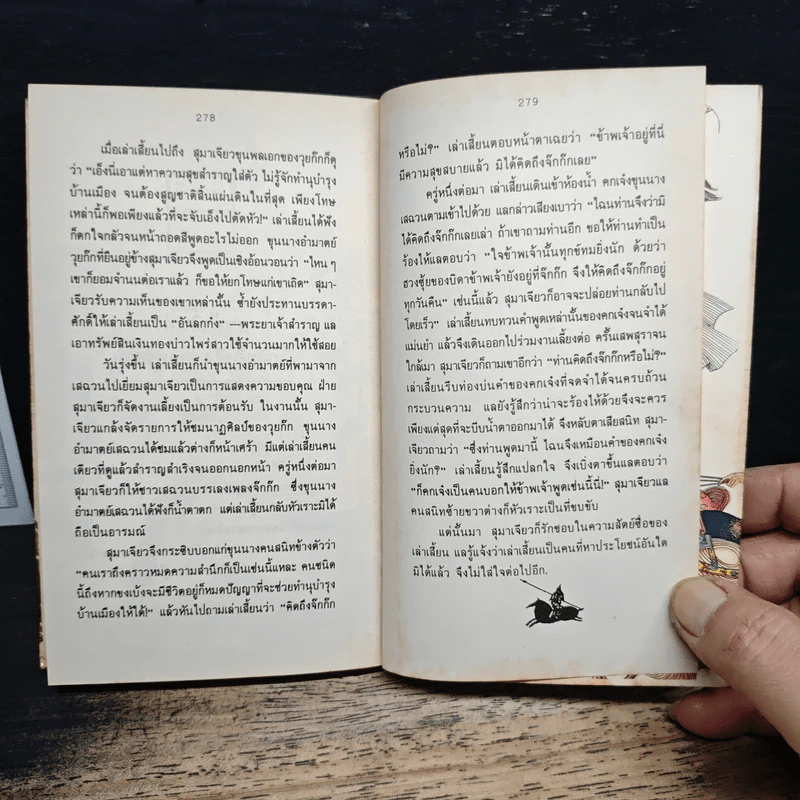 278
เมื่อเล่าเสี้ยนไปถึง สุมาเจียวขุนพลเอกของวุยก๊กก็ดุ
ว่า “เอ็งนี่เอาแต่หาความสุขสำราญใส่ตัว ไม่รู้จักทำนุบำรุง
บ้านเมือง จนต้องสูญชาติสิ้นแผ่นดินในที่สุด เพียงโทษ
เหล่านี้ก็พอเพียงแล้วที่จะจับเอ็งไปตัดหัว!” เล่าเสี้ยนได้ฟัง
ก็ตกใจกลัวจนหน้าถอดสีพูดอะไรไม่ออก ขุนนางอำมาตย์
วุยก๊กที่ยืนอยู่ข้างสุมาเจียวจึงพูดเป็นเชิงอ้อนวอนว่า “ไหนๆ
เขาก็ยอมจำนนต่อเราแล้ว ก็ขอให้ยกโทษแก่เขาเถิด” สุมา-
เจียวรับความเห็นของเขาเหล่านั้น ซ้ำยังประทานบรรดา-
ศักดิ์ให้เล่าเสี้ยนเป็น “อันลกก๋ง” —พระยาเจ้าสำราญ แล
เอาทรัพย์สินเงินทองบ่าวไพร่สาวใช้จำนวนมากให้ใช้สอย
วันรุ่งขึ้น เล่าเสี้ยนก็นำขุนนางอำมาตย์ที่พามาจาก
เสฉวนไปเยี่ยมสุมาเจียวเป็นการแสดงความขอบคุณ ฝ่าย
สุมาเจียวก็จัดงานเลี้ยงเป็นการต้อนรับ ในงานนั้น สุมา-
เจียวแกล้งจัดรายการให้ชมนาฏศิลป์ของวุยก๊ก ขุนนาง
อำมาตย์เสฉวนได้ชมแล้วต่างก็หน้าเศร้า มีแต่เล่าเสี้ยนคน
เดียวที่ดูแล้วสำราญสำเริงจนออกนอกหน้า ครู่หนึ่งต่อมา
สุมาเจียวก็ให้ชาวเสฉวนบรรเลงเพลงจ๊กก๊ก ซึ่งขุนนาง
อำมาตย์เสฉวนได้ฟังก็น้ำตาตก แต่เล่าเสี้ยนกลับหัวเราะมิได้
ถือเป็นอารมณ์
สุมาเจียวจึงกระซิบบอกแก่ขุนนางคนสนิทข้างตัวว่า
“คนเราถึงคราวหมดความสำนึกก็เป็นเช่นนี้แหละ คนชนิด
นี้ถึงหากขงเบ้งจะมีชีวิตอยู่ก็หมดปัญญาที่จะช่วยทำนุบำรุง
บ้านเมืองให้ได้!” แล้วหันไปถามเล่าเสี้ยนว่า “คิดถึงจ๊กก๊ก
279
หรือไม่?” เล่าเสี้ยนตอบหน้าตาเฉยว่า “ข้าพเจ้าอยู่ที่นี่
มีความสุขสบายแล้ว มิได้คิดถึงจ๊กก๊กเลย”
ครู่หนึ่งต่อมา เล่าเสี้ยนเดินเข้าห้องน้ำ คกเจ๋งขุนนาง
เสฉวนตามเข้าไปด้วย แลกล่าวเสียงเบาว่า “ไฉนท่านจึงว่ามิ
ได้คิดถึงจ๊กก๊กเลยเล่า ถ้าเขาถามท่านอีก ขอให้ท่านทำเป็น
ร้องไห้แลตอบว่า “ใจข้าพเจ้านั้นทุกข์ทมยิ่งนัก ด้วยว่า
ฮวงซุ้ยของบิดาข้าพเจ้ายังอยู่ที่จ๊กก๊ก จึงให้คิดถึงจ๊กก๊กอยู่
ทุกวันคืน” เช่นนี้แล้ว สุมาเจียวก็อาจจะปล่อยท่านกลับไป
โดยเร็ว” เล่าเสี้ยนทบทวนคำพูดเหล่านั้นของคกเจ๋งจนจำได้
แม่นยำ แล้วจึงเดินออกไปร่วมงานเลี้ยงต่อ ครั้นเสพสุราจน
ใกล้เมา สุมาเจียวก็ถามเขาอีกว่า “ท่านคิดถึงจ๊กก๊กหรือไม่?”
เล่าเสี้ยนรีบท่องบ่นคำของคกเจ๋งที่จดจำได้จนครบถ้วน
กระบวนความ แลยังรู้สึกว่าน่าจะร้องไห้ด้วยจึงจะควร
เพียงแต่สุดที่จะบีบน้ำตาออกมาได้ จึงหลับตาเสียสนิท สุมา-
เจียวถามว่า “ซึ่งท่านพูดมานี้ ไฉนจึงเหมือนคำของคกเจ๋ง
ยิ่งนัก?” เล่าเสี้ยนรู้สึกแปลกใจ จึงเบิ่งตาขึ้นแลตอบว่า
“ก็คกเจ๋งเป็นคนบอกให้ข้าพเจ้าพูดเช่นนี้นี่!” สุมาเจียวแล
คนสนิทซ้ายขวาต่างก็หัวเราะเป็นที่ขบขัน
แต่นั้นมา สุมาเจียวก็รักชอบในความสัตย์ซื่อของ
เล่าเสี้ยน แลรู้แจ้งว่าเล่าเสี้ยนเป็นคนที่หาประโยชน์อันใด
มิได้แล้ว จึงไม่ใส่ใจต่อไปอีก.